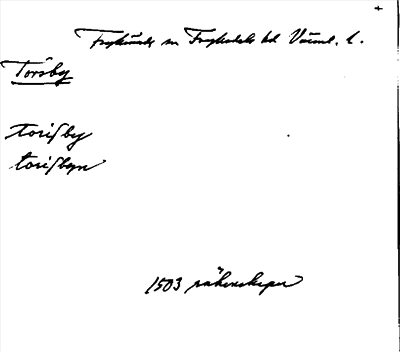 Fryksände sn Fryksdals hd Värml. l.
Torsby
torisby
torisbyn
1503 räkenskaper